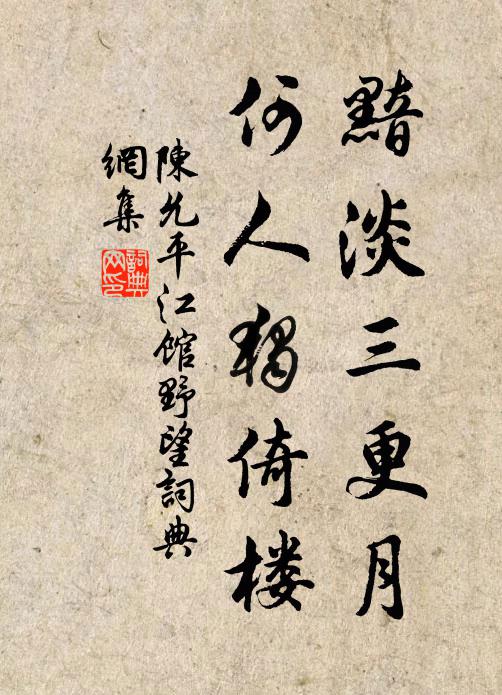 黯淡三更月
何人獨倚楼
陳允平江館野望詞典
網集
詞典
网印